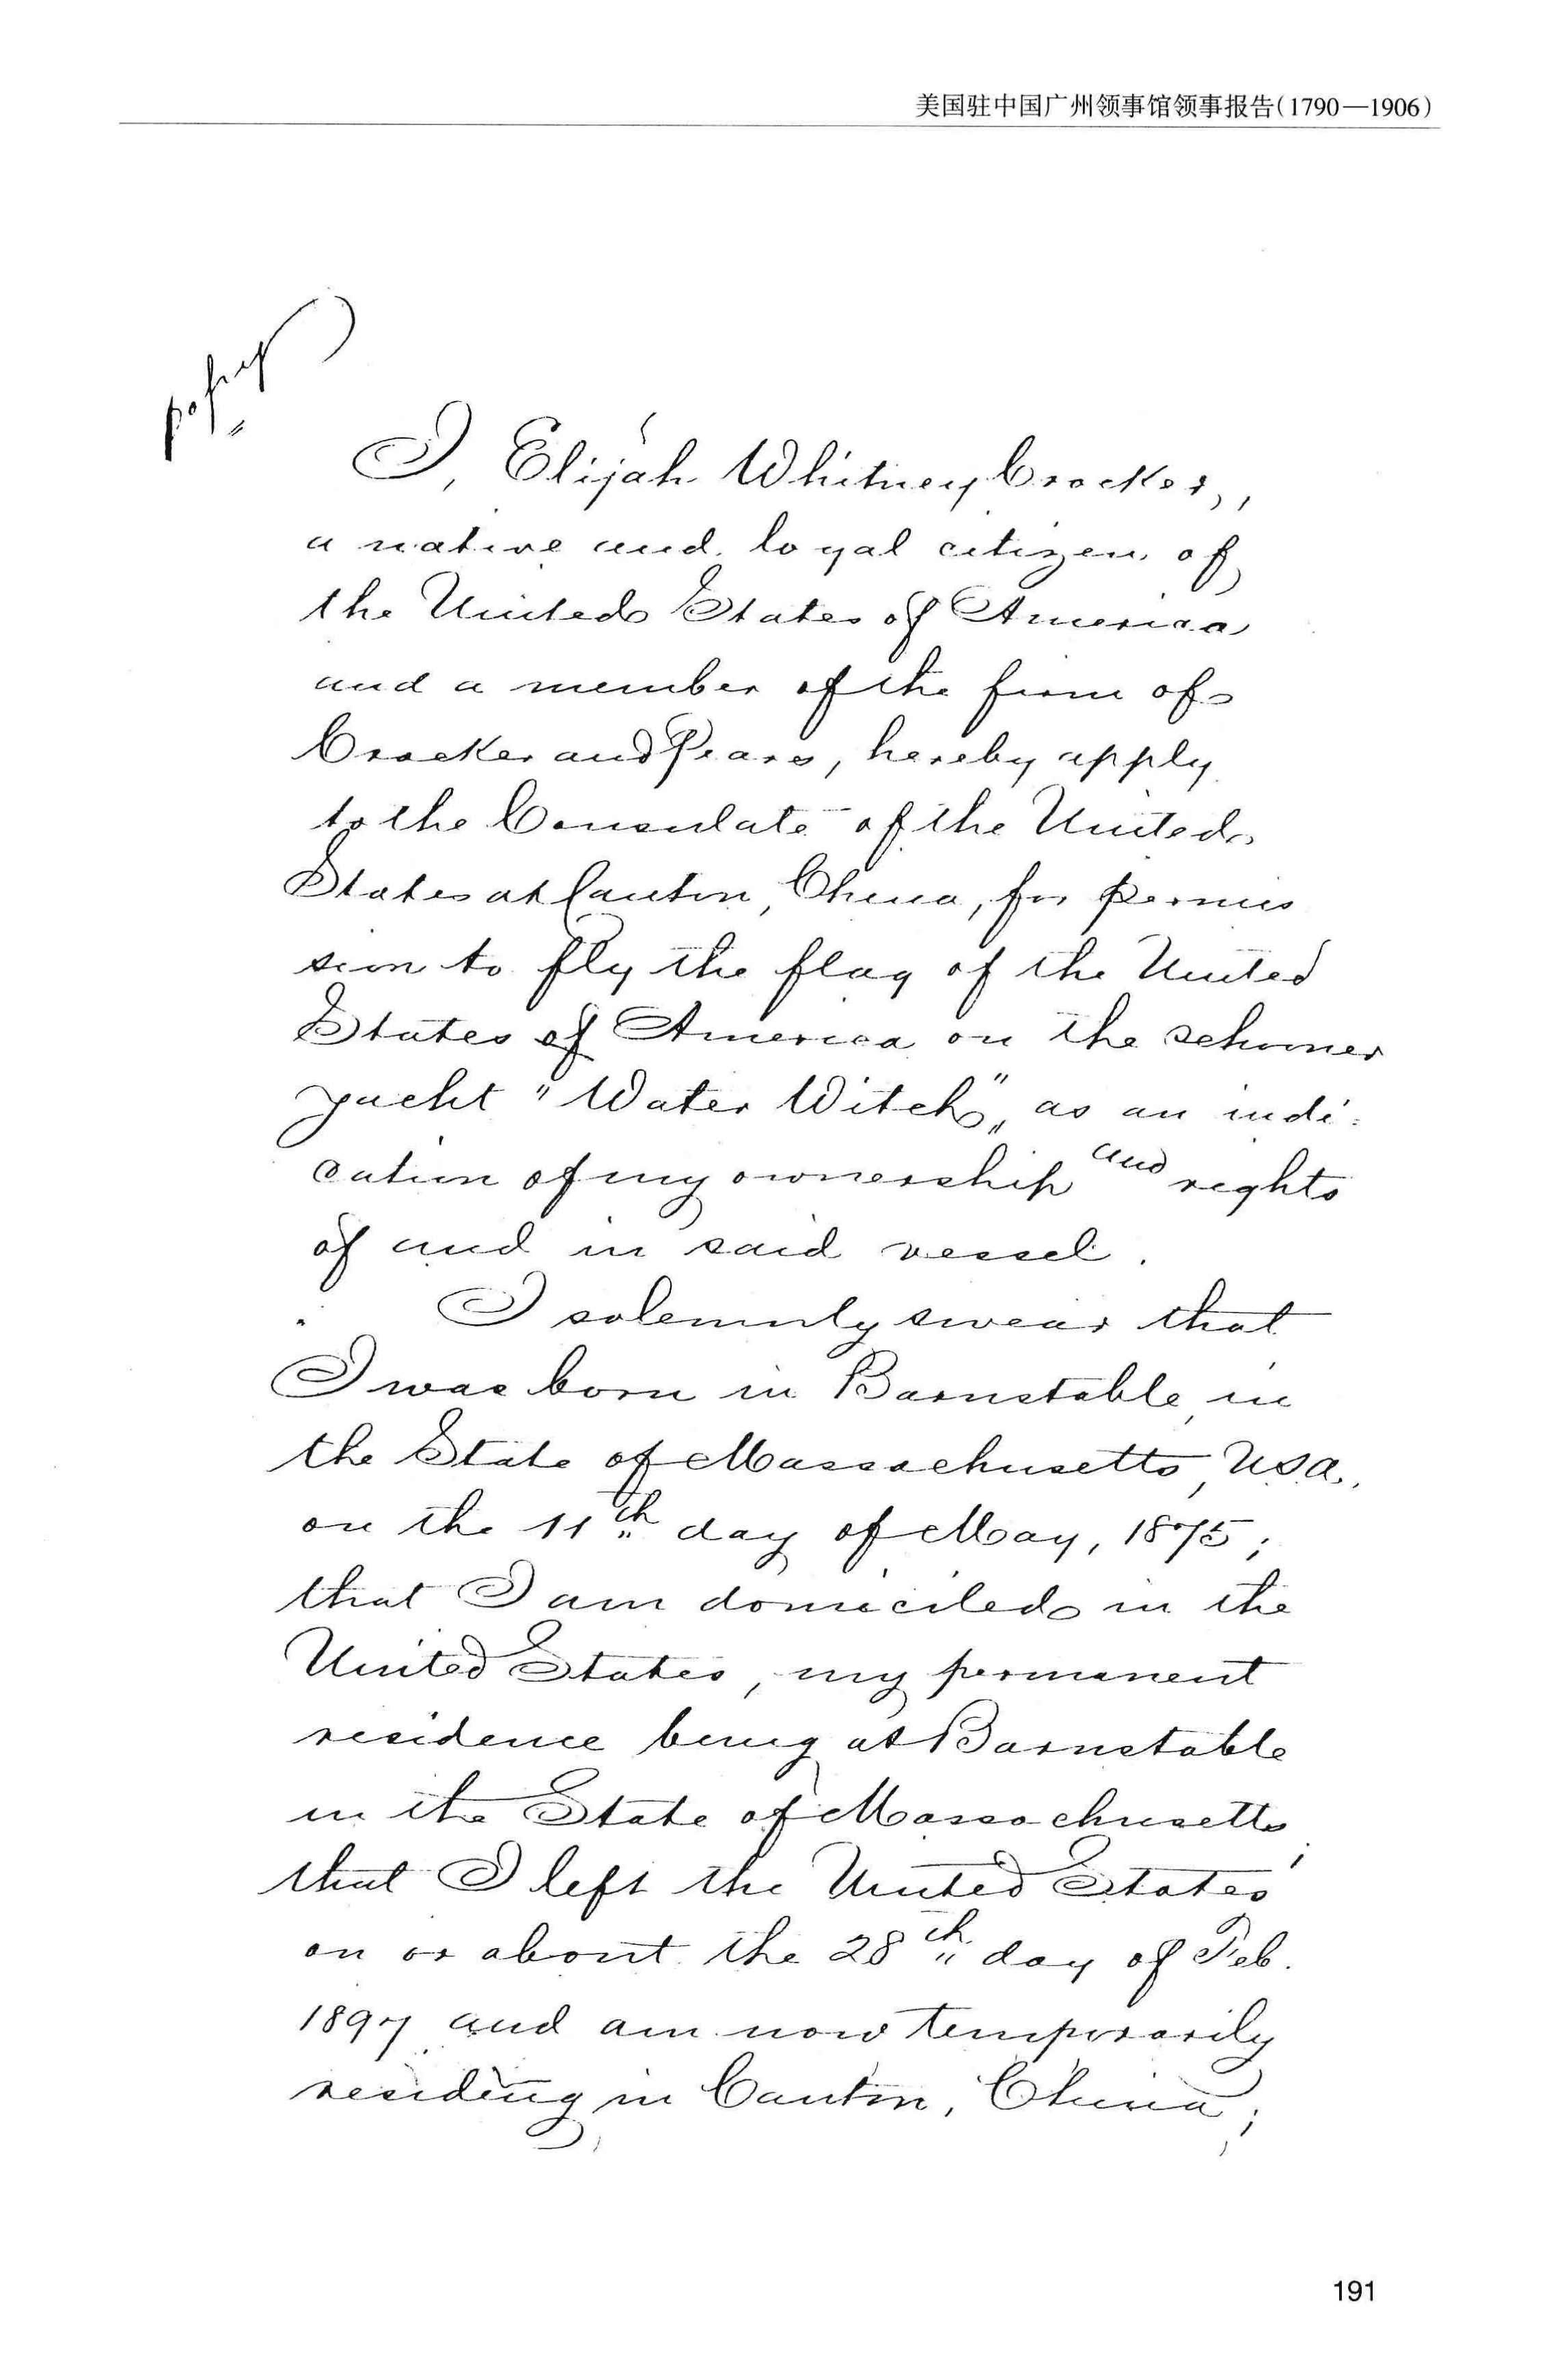 美国驻中国广州领事馆领事报告(1790—1906)
I, Elijah Whitney Crocker,,
a native and loyal citizen of
the United States of America
and a member of the firm of
Crocker and Pears, hereby apply
to the Consulate of the United
States at Canton, China, for permis
sion to fly the flag of the United
States of America on the schooner
yacht "Water Witch", as an indi-
cation of my ownership and rights
of and in said vessel.
I solemnly swear that
I was born in Barnstable, in
the State of Massachusetts, USA.,
on the 11th day of May, 1875;
that I am domiciled in the
United States, my permanent
residence being at Barnstable
in the State of Massachusetts;
that I left the United States
on or about the 28th day of Feb.
1897 and am now temporarily
residing in Canton, China;
191